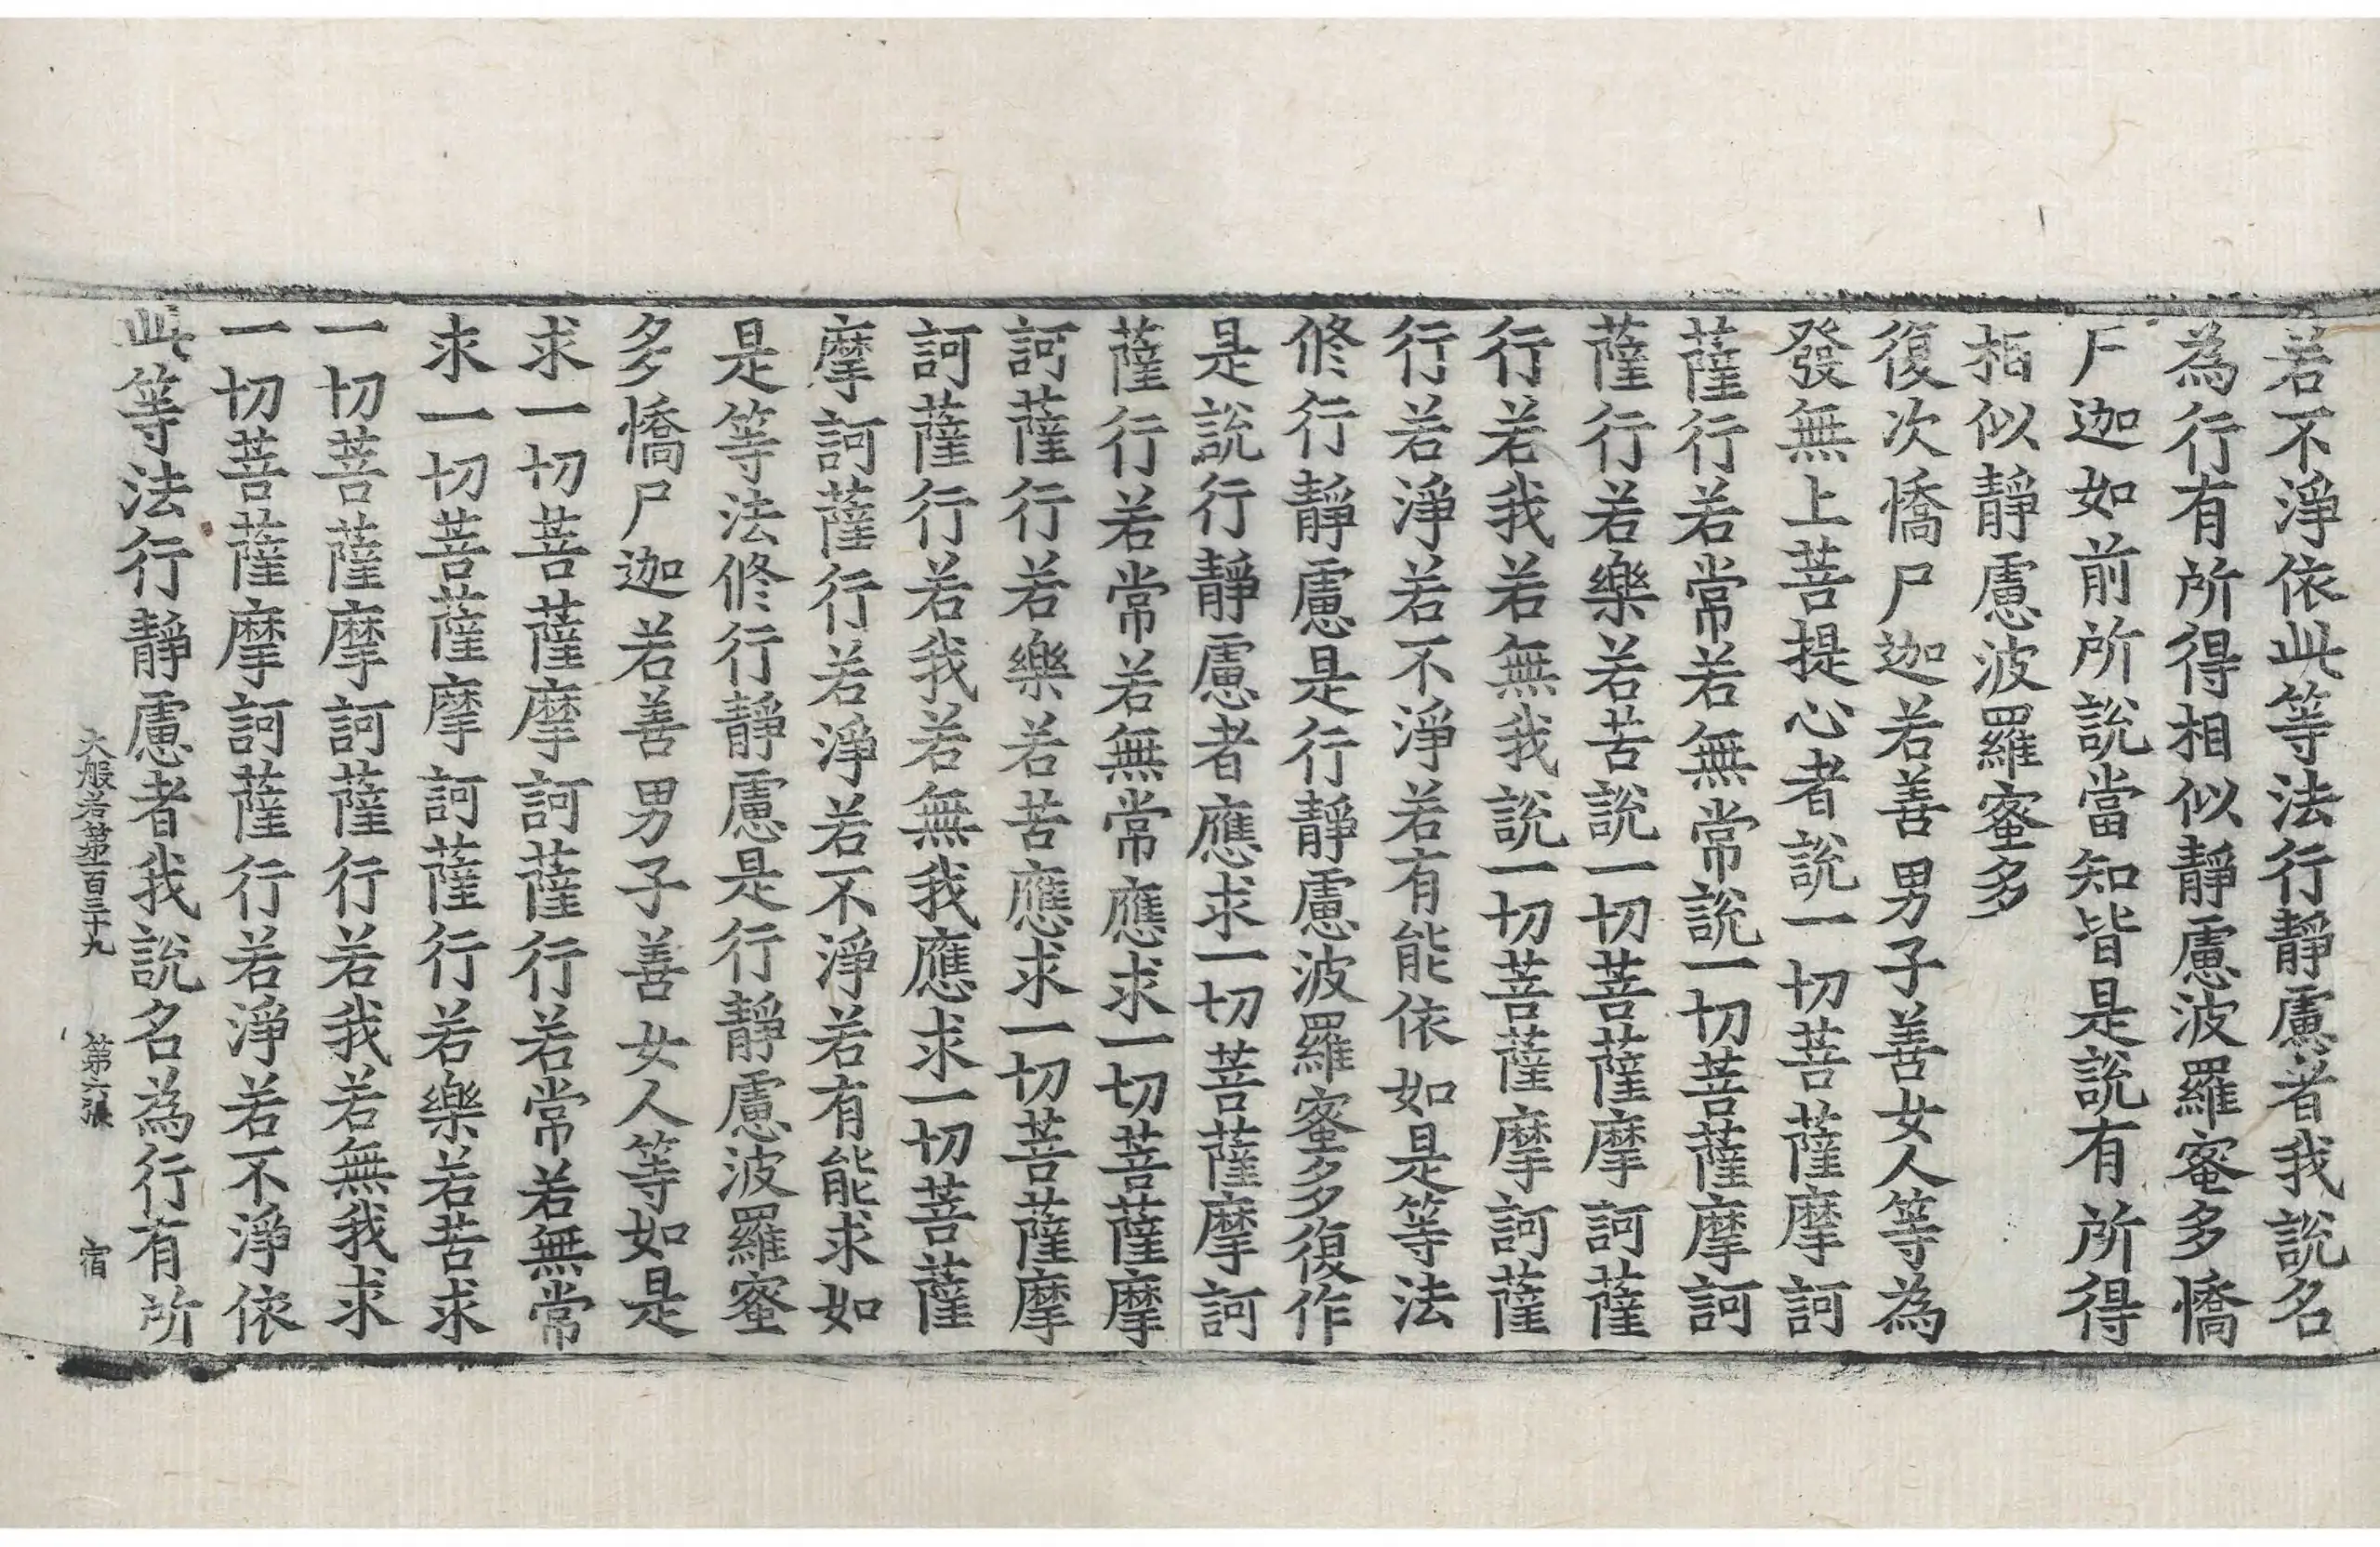 若不淨依此等法行靜慮者我說名
為行有所得相似靜慮波羅蜜多憍
尸迦如前所說當知皆是說有所得
相似靜慮波羅蜜多
復次憍尸迦若善男子善女人等為
發無上菩提心者說一切菩薩摩訶
薩行若常若無常說一切菩薩摩訶
薩行若樂若苦說一切菩薩摩訶薩
行若我若無我說一切菩薩摩訶薩
行若淨若不淨若有能依如是等法
修行靜慮是行靜慮波羅蜜多復作
是說行靜慮者應求一切菩薩摩訶
薩行若常若無常應求一切菩薩摩
訶薩行若樂若苦應求一切菩薩摩
訶薩行若我若無我應求一切菩薩
摩訶薩行若淨若不淨若有能求如
是等法修行靜慮是行靜慮波羅蜜
多憍尸迦若善男子善女人等如是
求一切菩薩摩訶薩行若常若無常
求一切菩薩摩訶薩行若樂若苦求
一切菩薩摩訶薩行若我若無我求
一切菩薩摩訶薩行若淨若不淨依
此等法行靜慮者我說名為行有所
大般若第一百三十九 第六張 宿